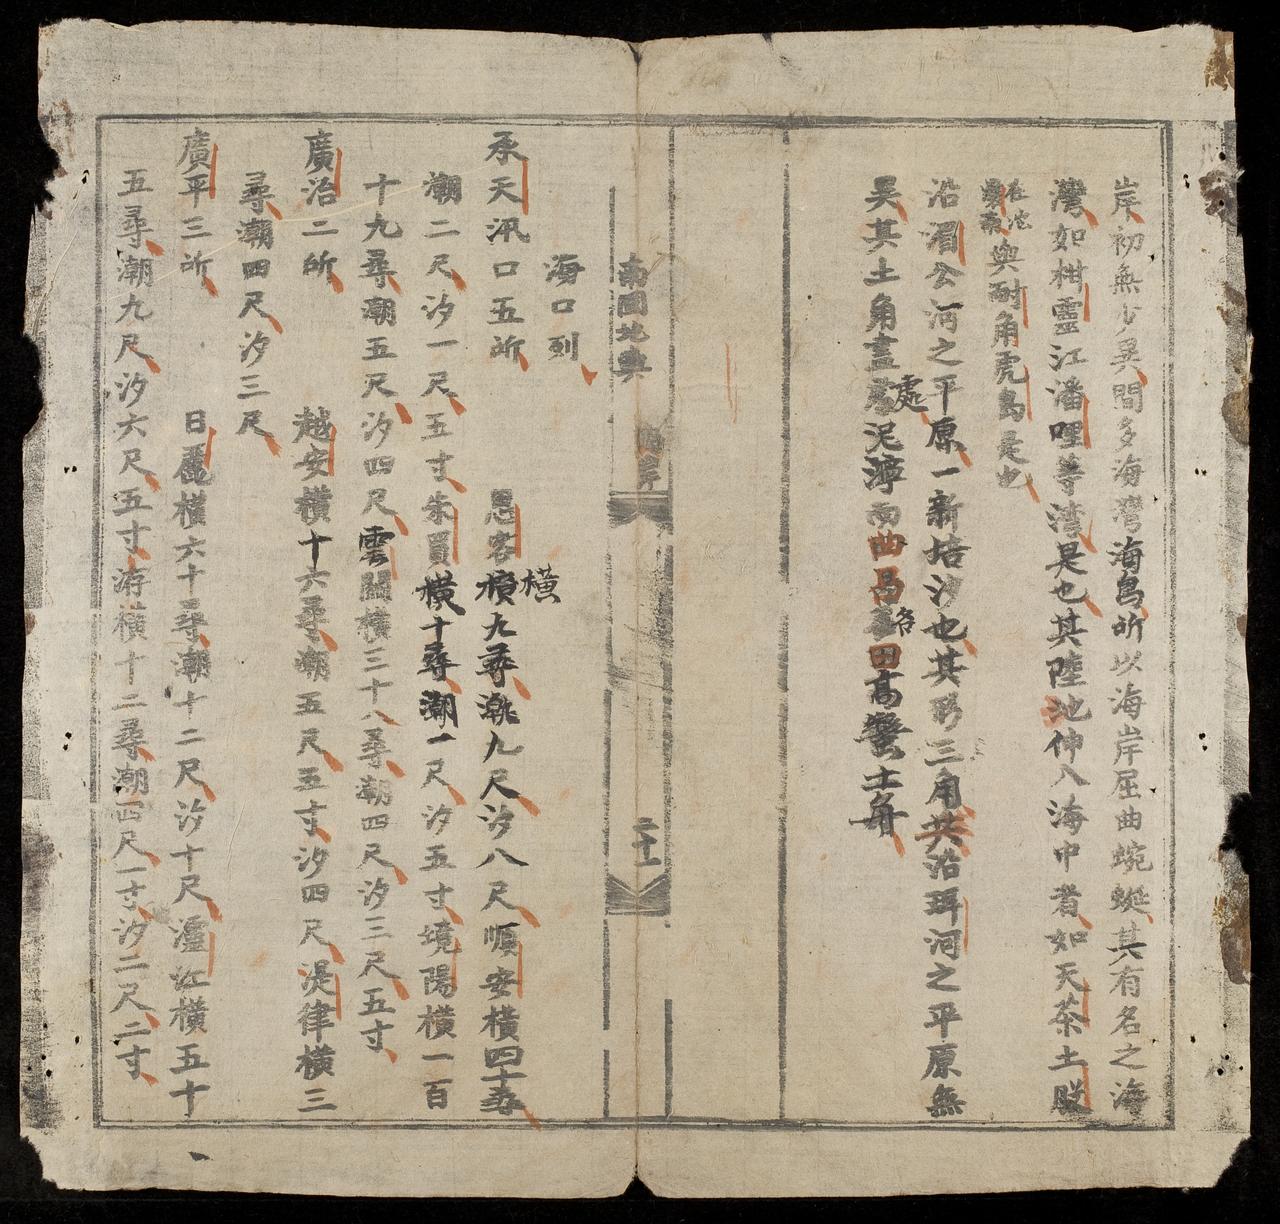 岸初無少異間多海灣海島所以海岸屈曲蜿蜒其有名之海
灣如柑靈江潘哩等湾是也其陸池伸入海中者如天茶土股
在沱
南與耐角虎島是也
沿湄公河之平原一新培沙也其形三角共沿珥河之平原無
異其土角畫處泥濘而曲昌名田高蠻土舜
南國地輿
二十一
海口列
承天汛口五所 思客橫九尋潮九尺汐八尺順安橫四十尋
潮二尺汐一尺五寸朱買橫十尋潮一尺汐五寸境陽橫一百
十九尋潮五尺汐四尺雲關橫三十八尋潮四尺汐三尺五寸
廣治二所 越安橫十六尋潮五尺五寸汐四尺湜律橫三
尋潮四尺汐三尺
廣平三所 日麗橫六十尋潮十二尺汐十尺瀍江橫五十
五尋潮九尺汐六尺五寸游橫十二尋潮四尺一寸汐二尺二寸